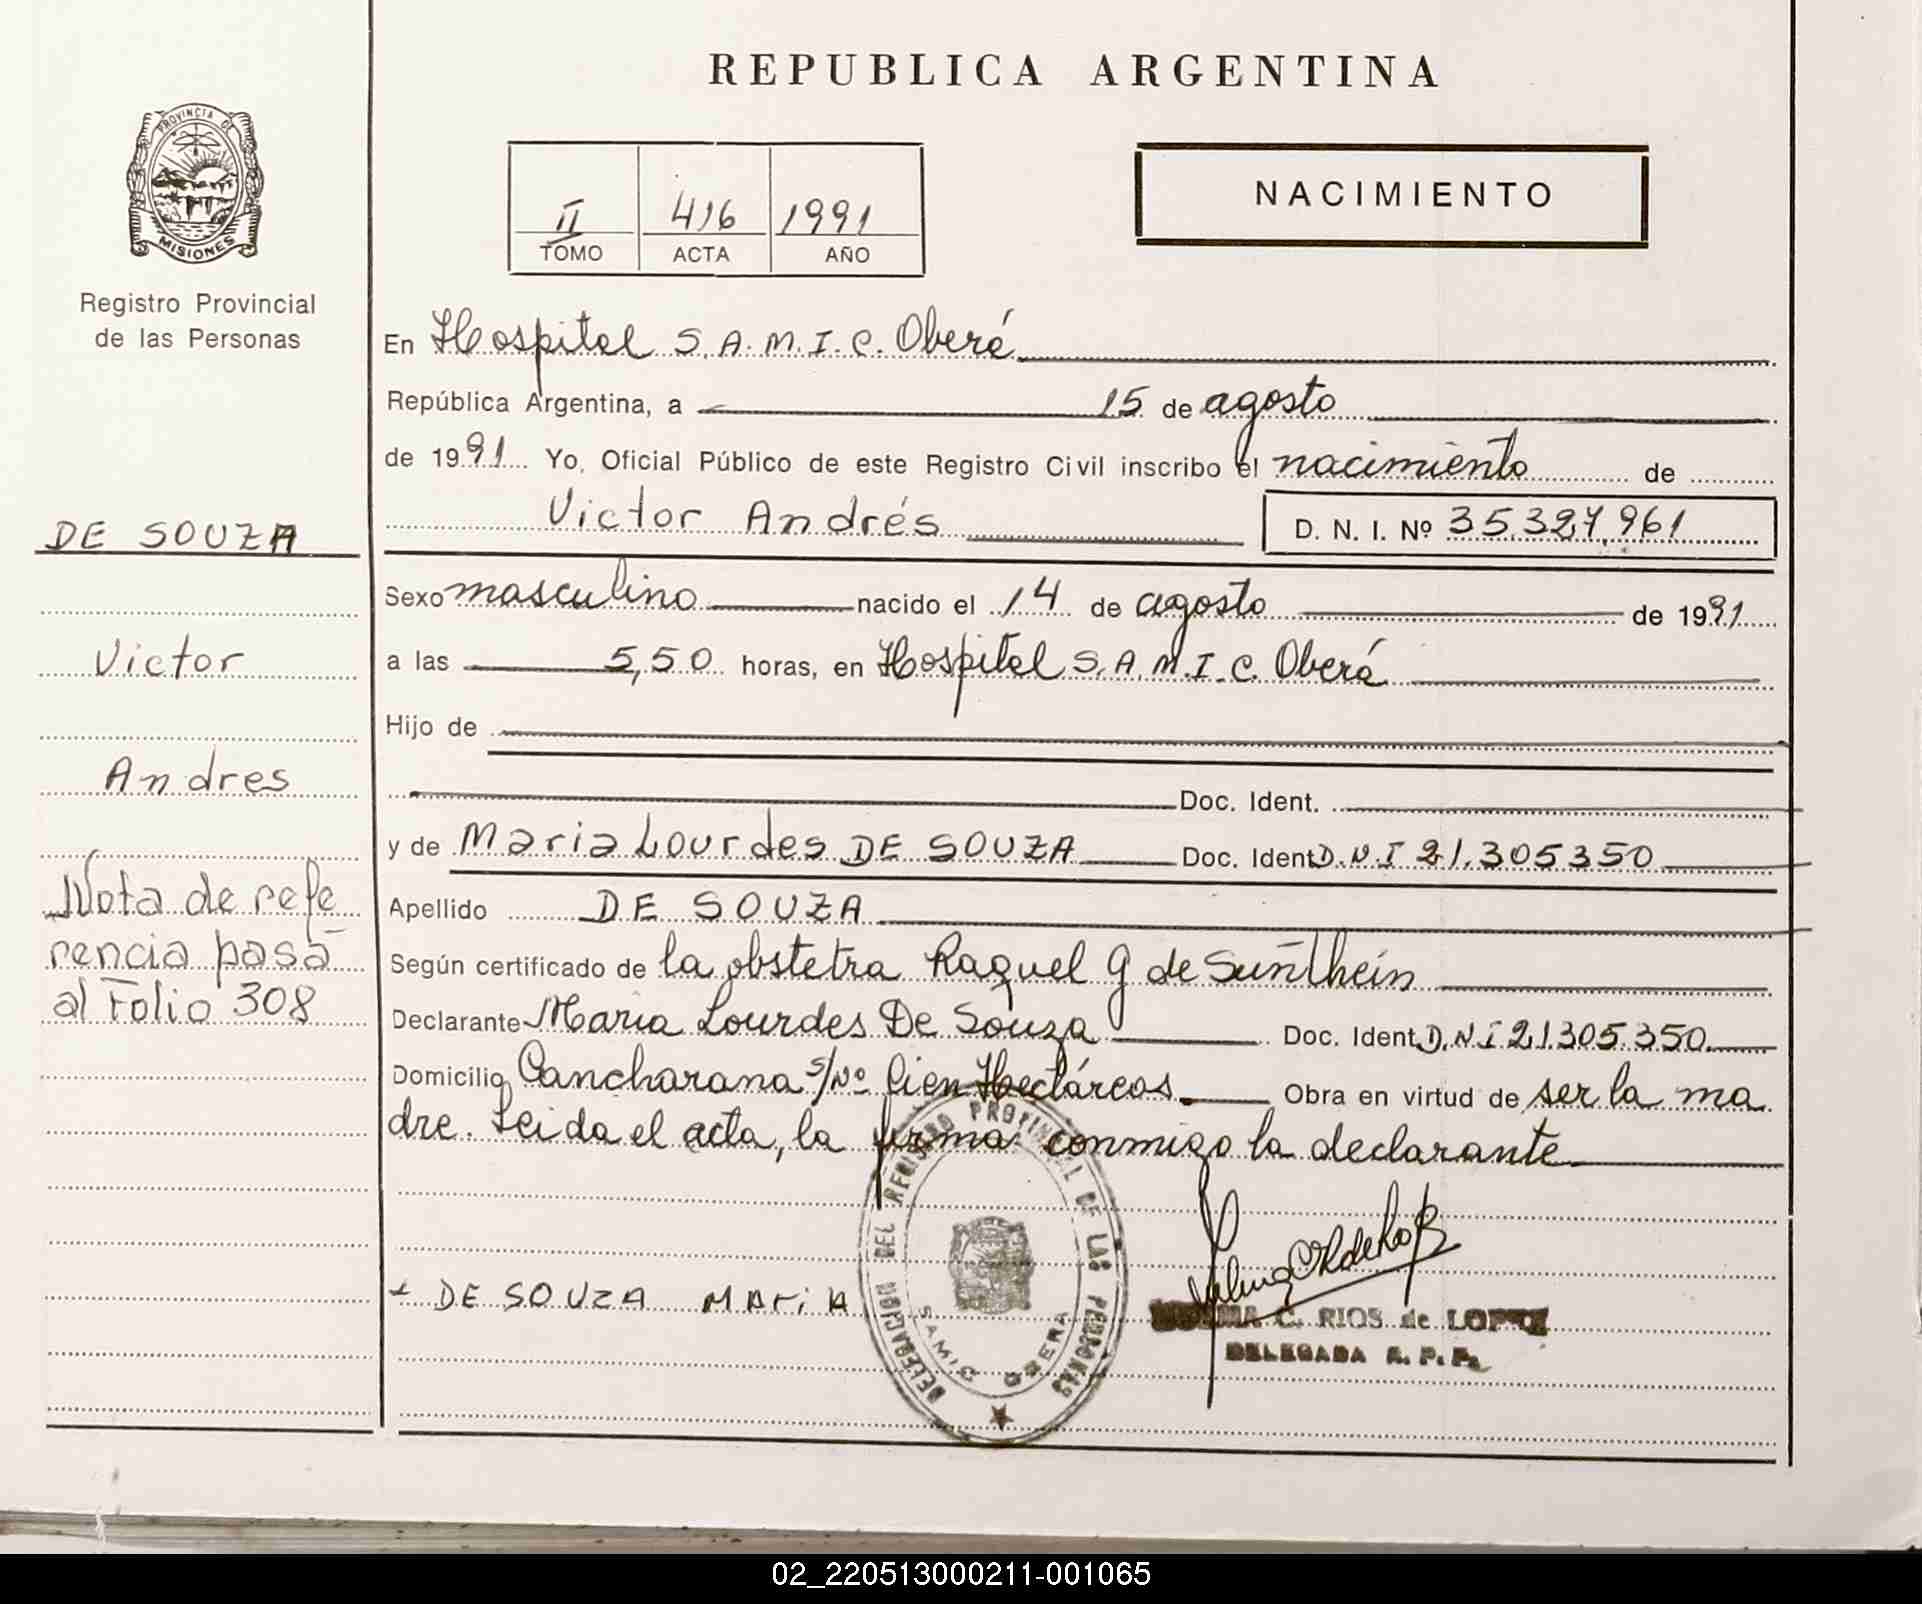 REPUBLICA ARGENTINA
PROVINCIA DE
MISIONES
Registro Provincial
de las Personas
II 416 1991
TOMO ACTA AÑO
NACIMIENTO
En Hospital S.A.M.I.C. Oberá
República Argentina, a 15 de agosto
de 1991 Yo, Oficial Público de este Registro Civil inscribo el nacimiento de
Victor Andrés D. N. I. Nº 35.327.961
DE SOUZA
Sexo masculino nacido el 14 de agosto de 1991
Victor
a las 5,50 horas, en Hospital S.A.M.I.C. Oberá
Hijo de
Andres
Doc. Ident.
y de Maria Lourdes DE SOUZA Doc. Ident D.N.I 21.305350
Nota de refe
rencia pasa
al Folio 308
Apellido DE SOUZA
Según certificado de la obstetra Raquel G de
Declarante Maria Lourdes De Souza Doc. Ident D.N.I 21.305.350
Domicilio Cancharana s/Nº Cien Hectáreas Obra en virtud de ser la ma
dre. Leida el acta, la firma conmigo la declarante
DE SOUZA MAriA
DELEGACION DEL REGISTRO PROVINCIAL DE LAS PERSONAS
SAMIC OBERA
C. RIOS de LOPEZ
DELEGADA R. P. P.
02_220513000211-001065